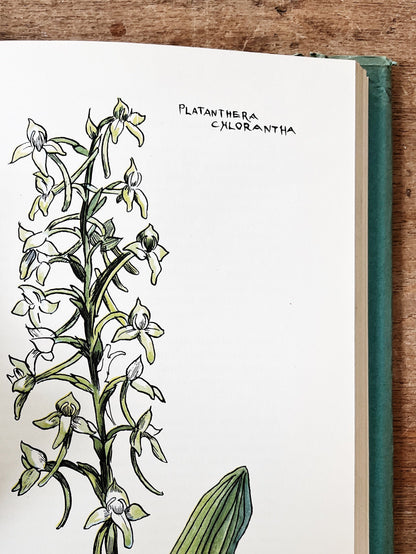 PLATANTHERA
CHLORANTHA